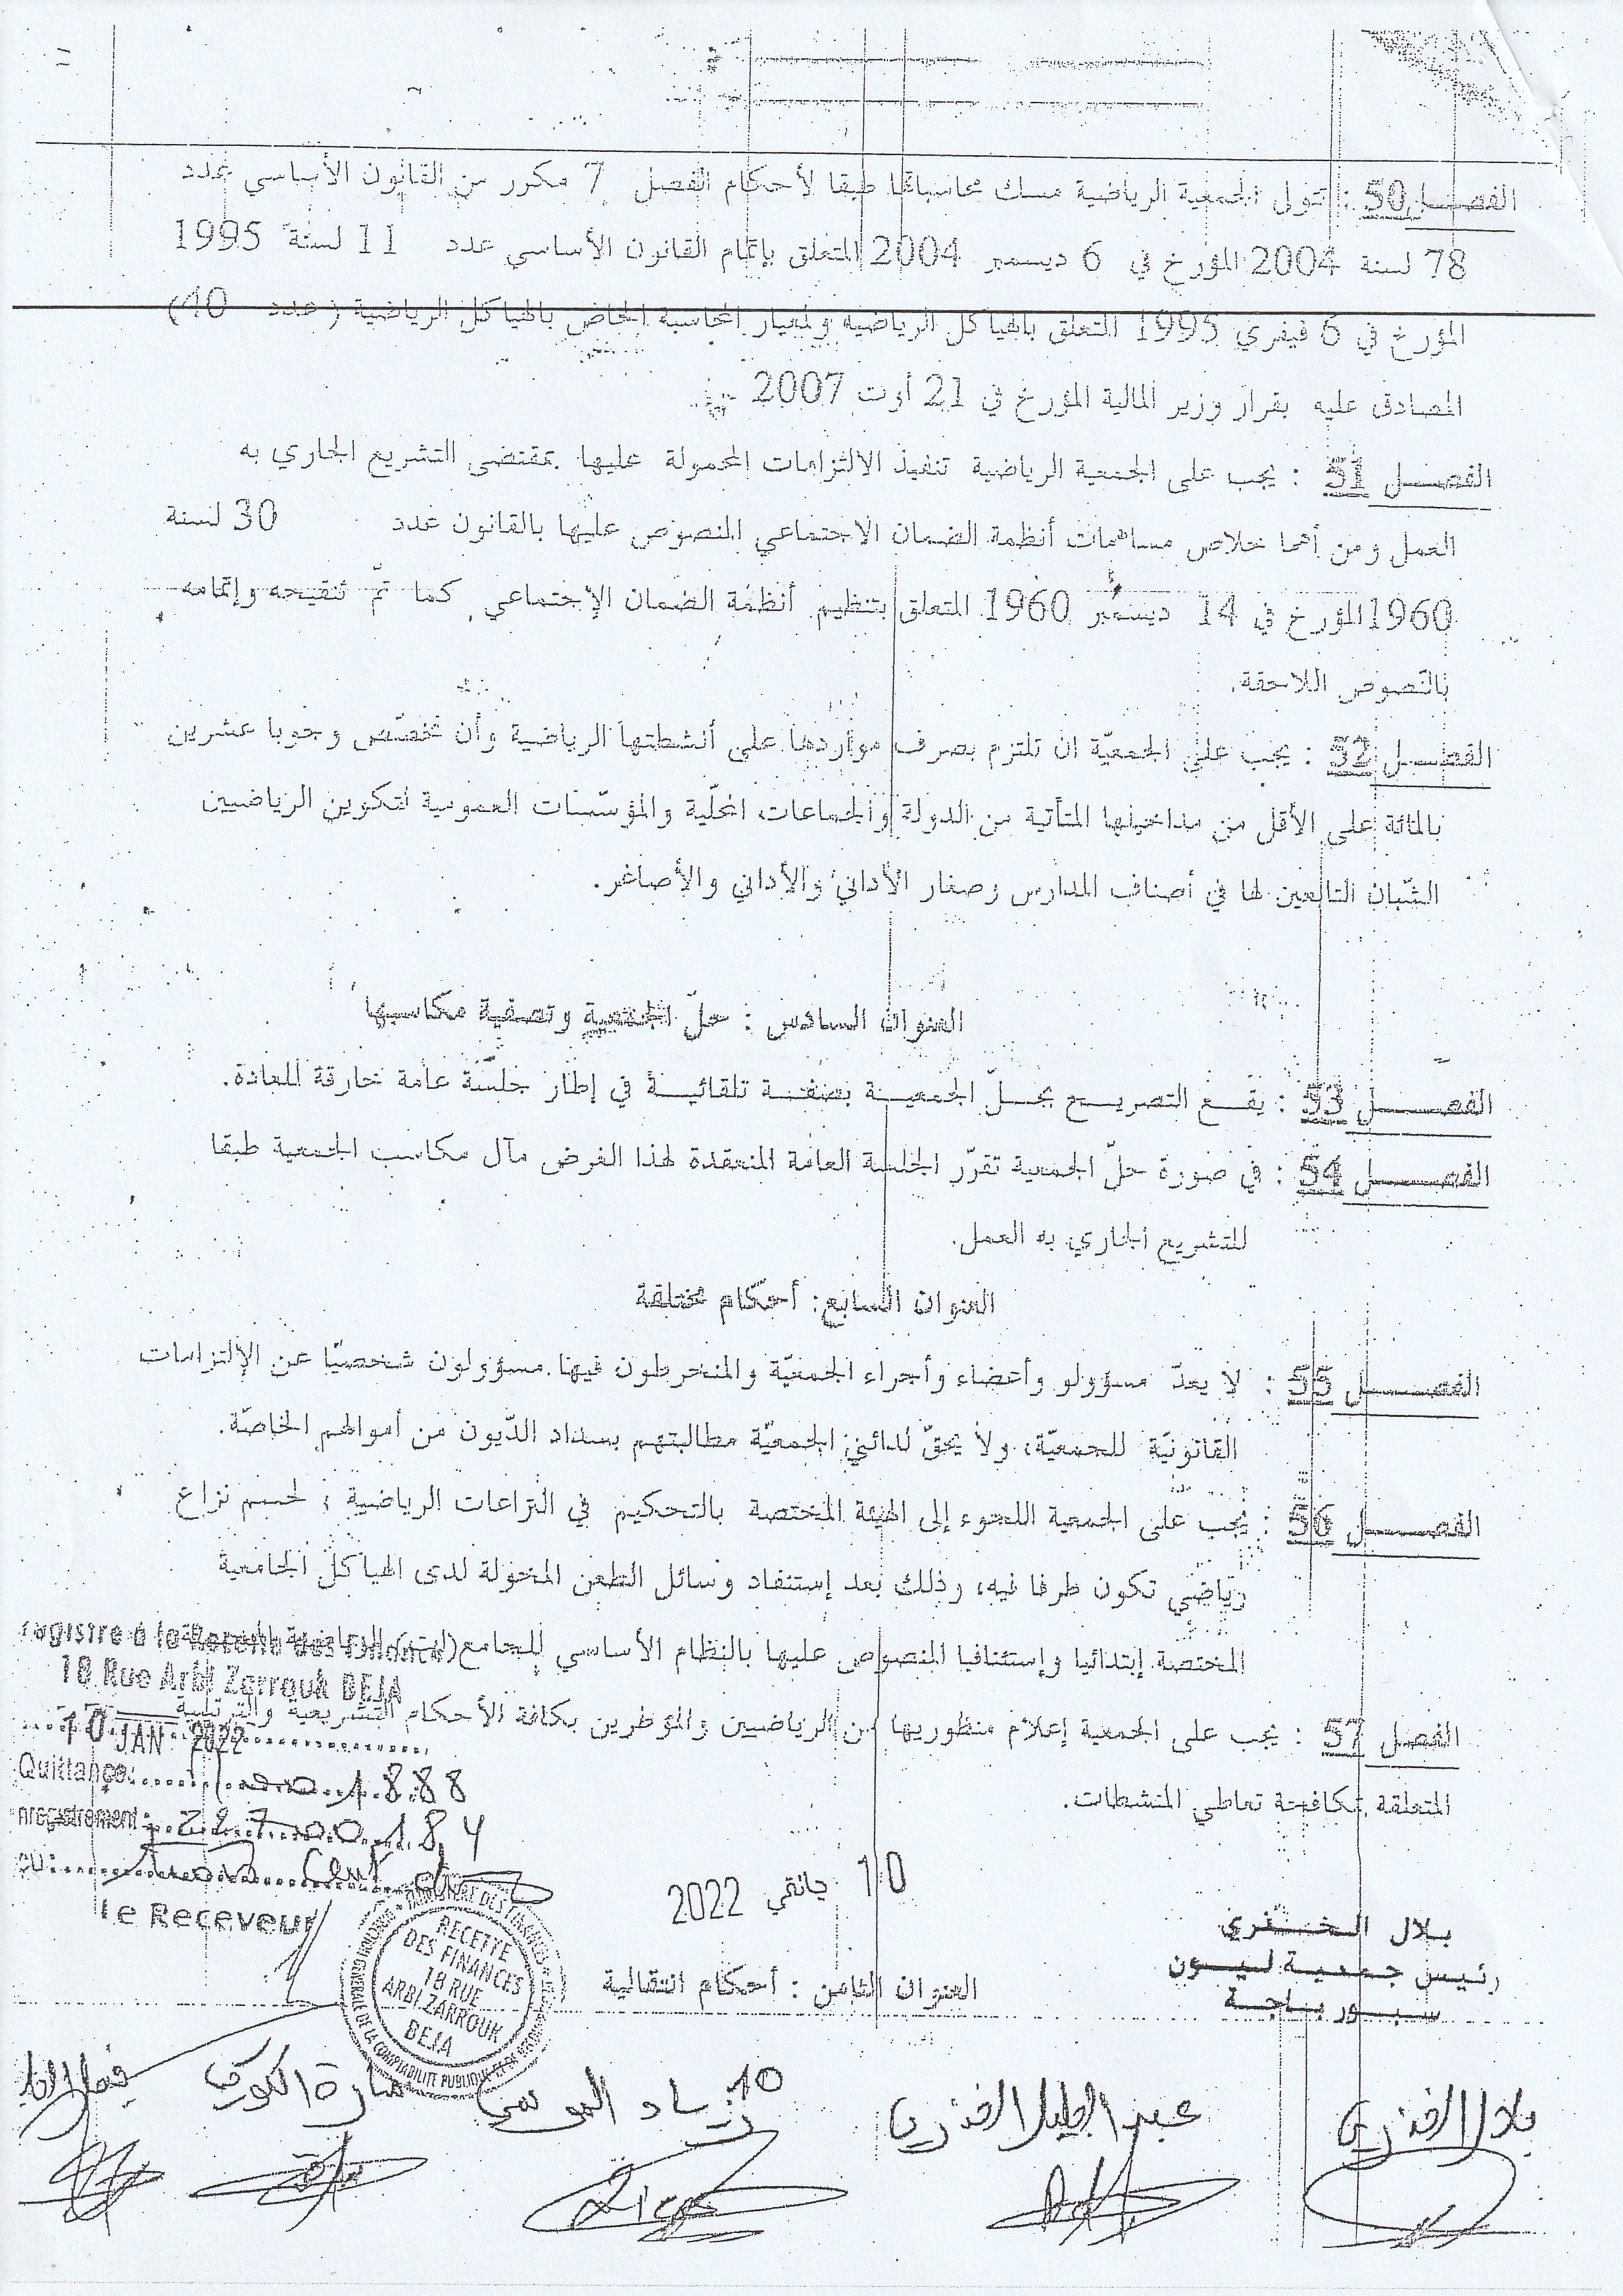 الفصـــل 50 : تتولى الجمعية الرياضية مسك محاسباتها طبقا لأحكام الفصل 7 مكرر من القانون الأساسي عدد
78 لسنة 2004 المؤرخ في 6 ديسمبر 2004 المتعلق بإتمام القانون الأساسي عدد 11 لسنة 1995
المؤرخ في 6 فيفري 1995 المتعلق بالهياكل الرياضية ولمعيار المحاسبة الخاص بالهياكل الرياضية (عدد 40)
المصادق عليه بقرار وزير المالية المؤرخ في 21 أوت 2007
الفصـــل 51 : يجب على الجمعية الرياضية تنفيذ الالتزامات المحمولة عليها بمقتضى التشريع الجاري به
العمل ومن أهمها خلاص مساهمات أنظمة الضمان الاجتماعي المنصوص عليها بالقانون عدد 30 لسنة
1960 المؤرخ في 14 ديسمبر 1960 المتعلق بتنظيم أنظمة الضمان الإجتماعي كما تمّ تنقيحه وإتمامه
بالنصوص اللاحقة.
الفصـــل 52 : يجب على الجمعيّة ان تلتزم بصرف مواردها على أنشطتها الرياضية وأن تخصّص وجوبا عشرين
بالمائة على الأقل من مداخيلها المتأتية من الدولة والجماعات المحلّية والمؤسّسات العمومية لتكوين الرياضيين
الشّبان التابعين لها في أصناف المدارس وصغار الأداني والأداني والأصاغر.
العنوان السادس : حلّ الجمعية وتصفية مكاسبها
الفصـــل 53 : يقـع التصريـح بحـلّ الجمعيـة بصفـة تلقائيـة في إطار جلسة عامة خارقة للعادة.
الفصـــل 54 : في صورة حلّ الجمعية تقرّر الجلسة العامة المنعقدة لهذا الغرض مآل مكاسب الجمعية طبقا
للتشريع الجاري به العمل.
العنوان السابع: أحكام مختلفة
الفصـــل 55 : لا يعدّ مسؤولو وأعضاء وأجراء الجمعيّة والمنخرطون فيها مسؤولون شخصيّا عن الإلتزامات
القانونيّة للجمعيّة، ولا يحقّ لدائني الجمعيّة مطالبتهم بسداد الدّيون من أموالهم الخاصّة.
الفصـــل 56 : يجب على الجمعية اللجوء إلى الهيئة المختصة بالتحكيم في النزاعات الرياضية ، لحسم نزاع
رياضي تكون طرفا فيه، وذلك بعد إستنفاد وسائل الطعن المخولة لدى الهياكل الجامعية
المختصة إبتدائيا وإستئنافيا المنصوص عليها بالنظام الأساسي للجامع(ات) الرياضية
الفصل 57 : يجب على الجمعية إعلام منظوريها من الرياضيين والمؤطرين بكافة الأحكام التشريعية والترتيبية
المتعلقة بمكافحة تعاطي المنشطات.
registre à la Recette des Finances
18 Rue Arbi Zarrouk BEJA
10 JAN 2022
Quittance: 1888
nregistrement : 22700184
le Receveur
RECETTE
DES FINANCES
18 RUE
ARBI ZARROUK
BEJA
10 جانفي 2022
بـلال الخـنـزري
رئـيـس جـمـعـيـة لـيـون
سبـور بـاجـة
العنوان الثامن : أحكام انتقالية
بلال الخنزري
عبد الجليل الخنزري
زياد الموسى
سارة الكوكي